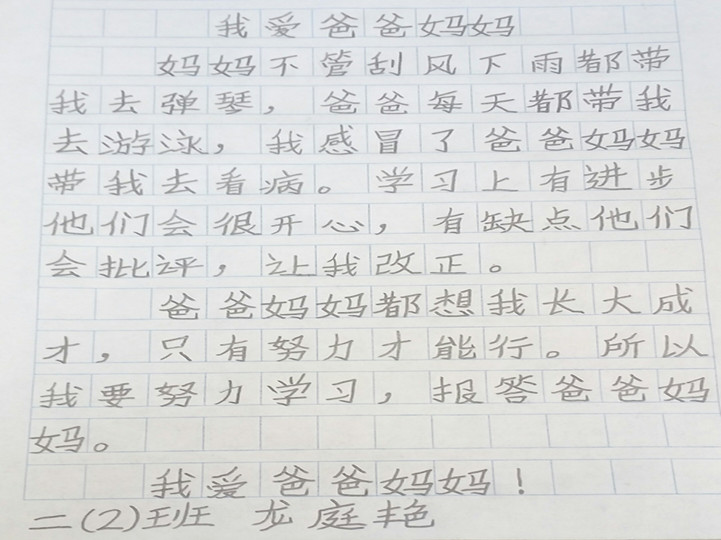 我爱爸爸妈妈
妈妈不管刮风下雨都带
我去弹琴，爸爸每天都带我
去游泳，我感冒了爸爸妈妈
带我去看病。学习上有进步
他们会很开心，有缺点他们
会批评，让我改正。
爸爸妈妈都想我长大成
才，只有努力才能行。所以
我要努力学习，报答爸爸妈
妈。
我爱爸爸妈妈！
二(2)班 龙庭艳